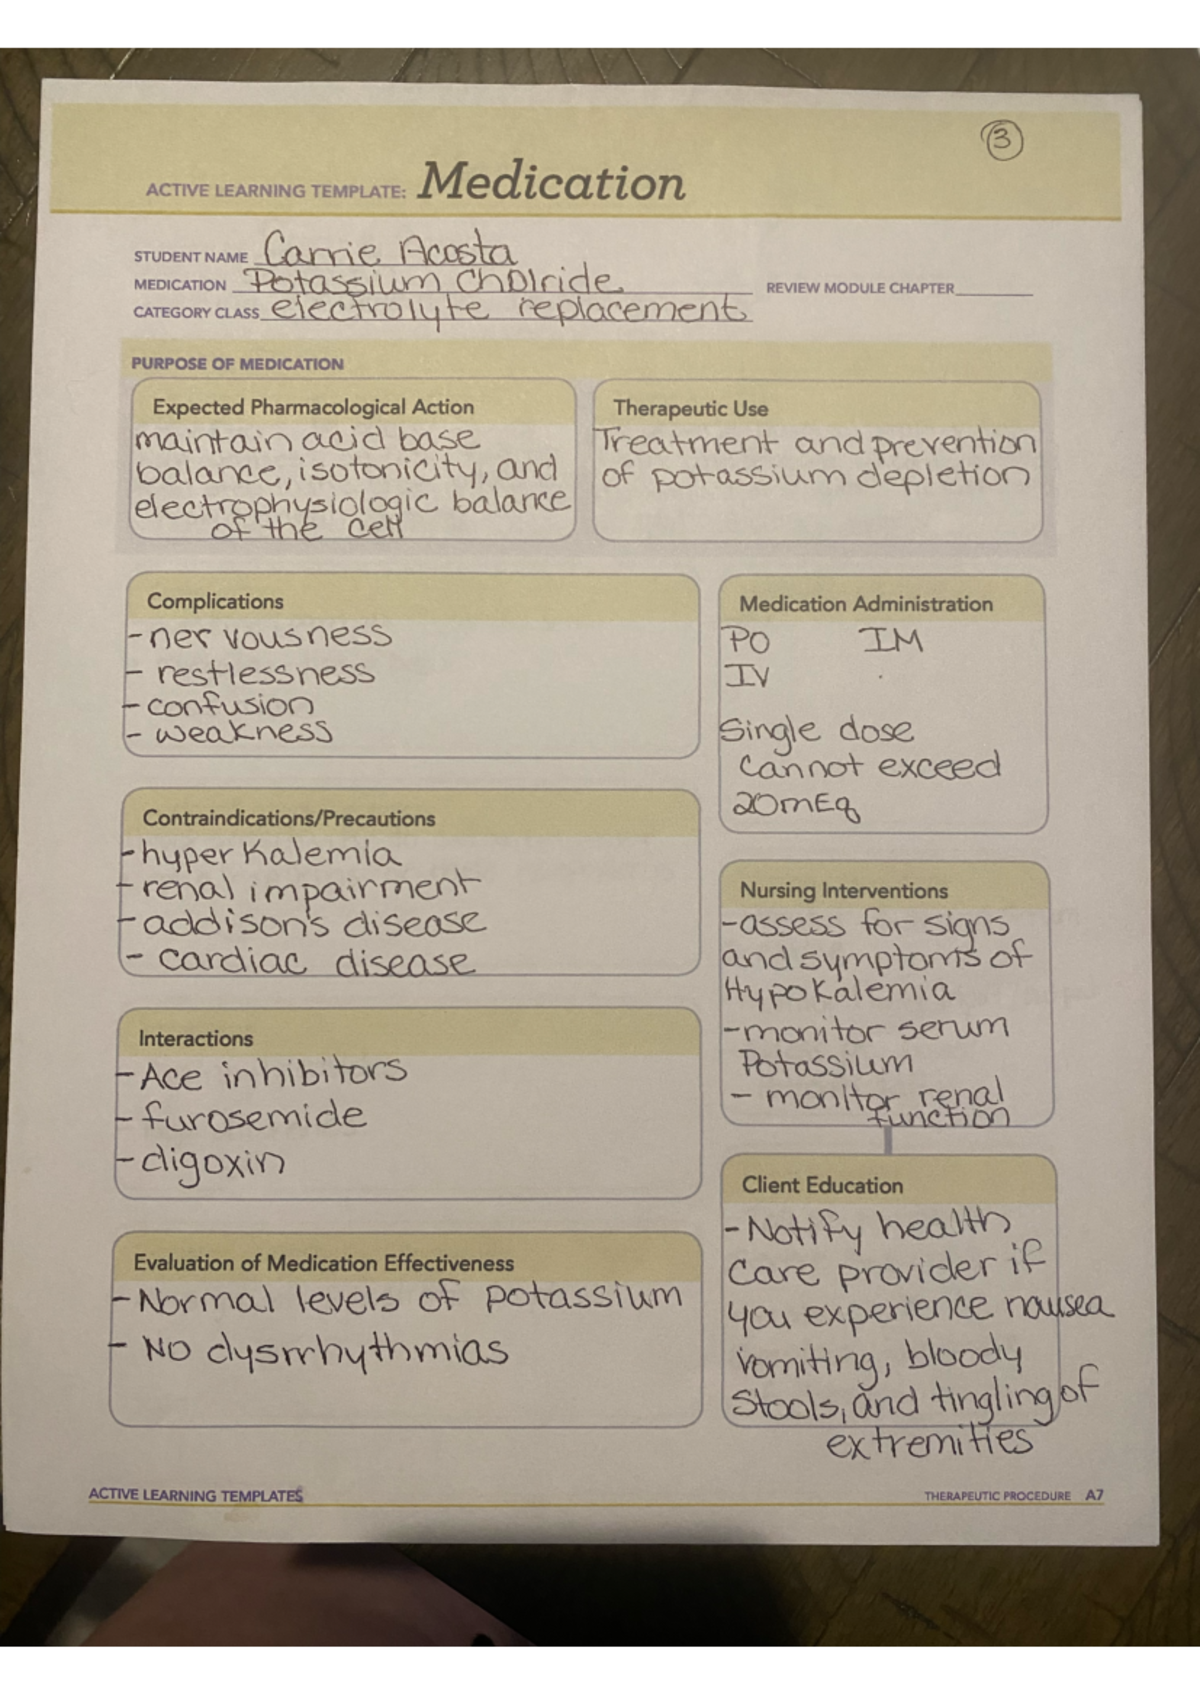 3
ACTIVE LEARNING TEMPLATE: Medication
STUDENT NAME Carrie Acosta
MEDICATION Potassium Cholride REVIEW MODULE CHAPTER
CATEGORY CLASS electrolyte replacement
PURPOSE OF MEDICATION
Expected Pharmacological Action
maintain acid base
balance, isotonicity, and
electrophysiologic balance
of the cell
Therapeutic Use
Treatment and prevention
of potassium depletion
Complications
- nervousness
- restlessness
- confusion
- weakness
Medication Administration
PO IM
IV
Single dose
cannot exceed
20mEq
Contraindications/Precautions
- hyperkalemia
- renal impairment
- addison's disease
- cardiac disease
Nursing Interventions
- assess for signs
and symptoms of
Hypokalemia
- monitor serum
Potassium
- monitor renal
function
Interactions
- Ace inhibitors
- furosemide
- digoxin
Evaluation of Medication Effectiveness
- Normal levels of potassium
- No dysrrhythmias
Client Education
- Notify health
care provider if
you experience nausea
vomiting, bloody
stools, and tingling of
extremities
ACTIVE LEARNING TEMPLATES THERAPEUTIC PROCEDURE A7